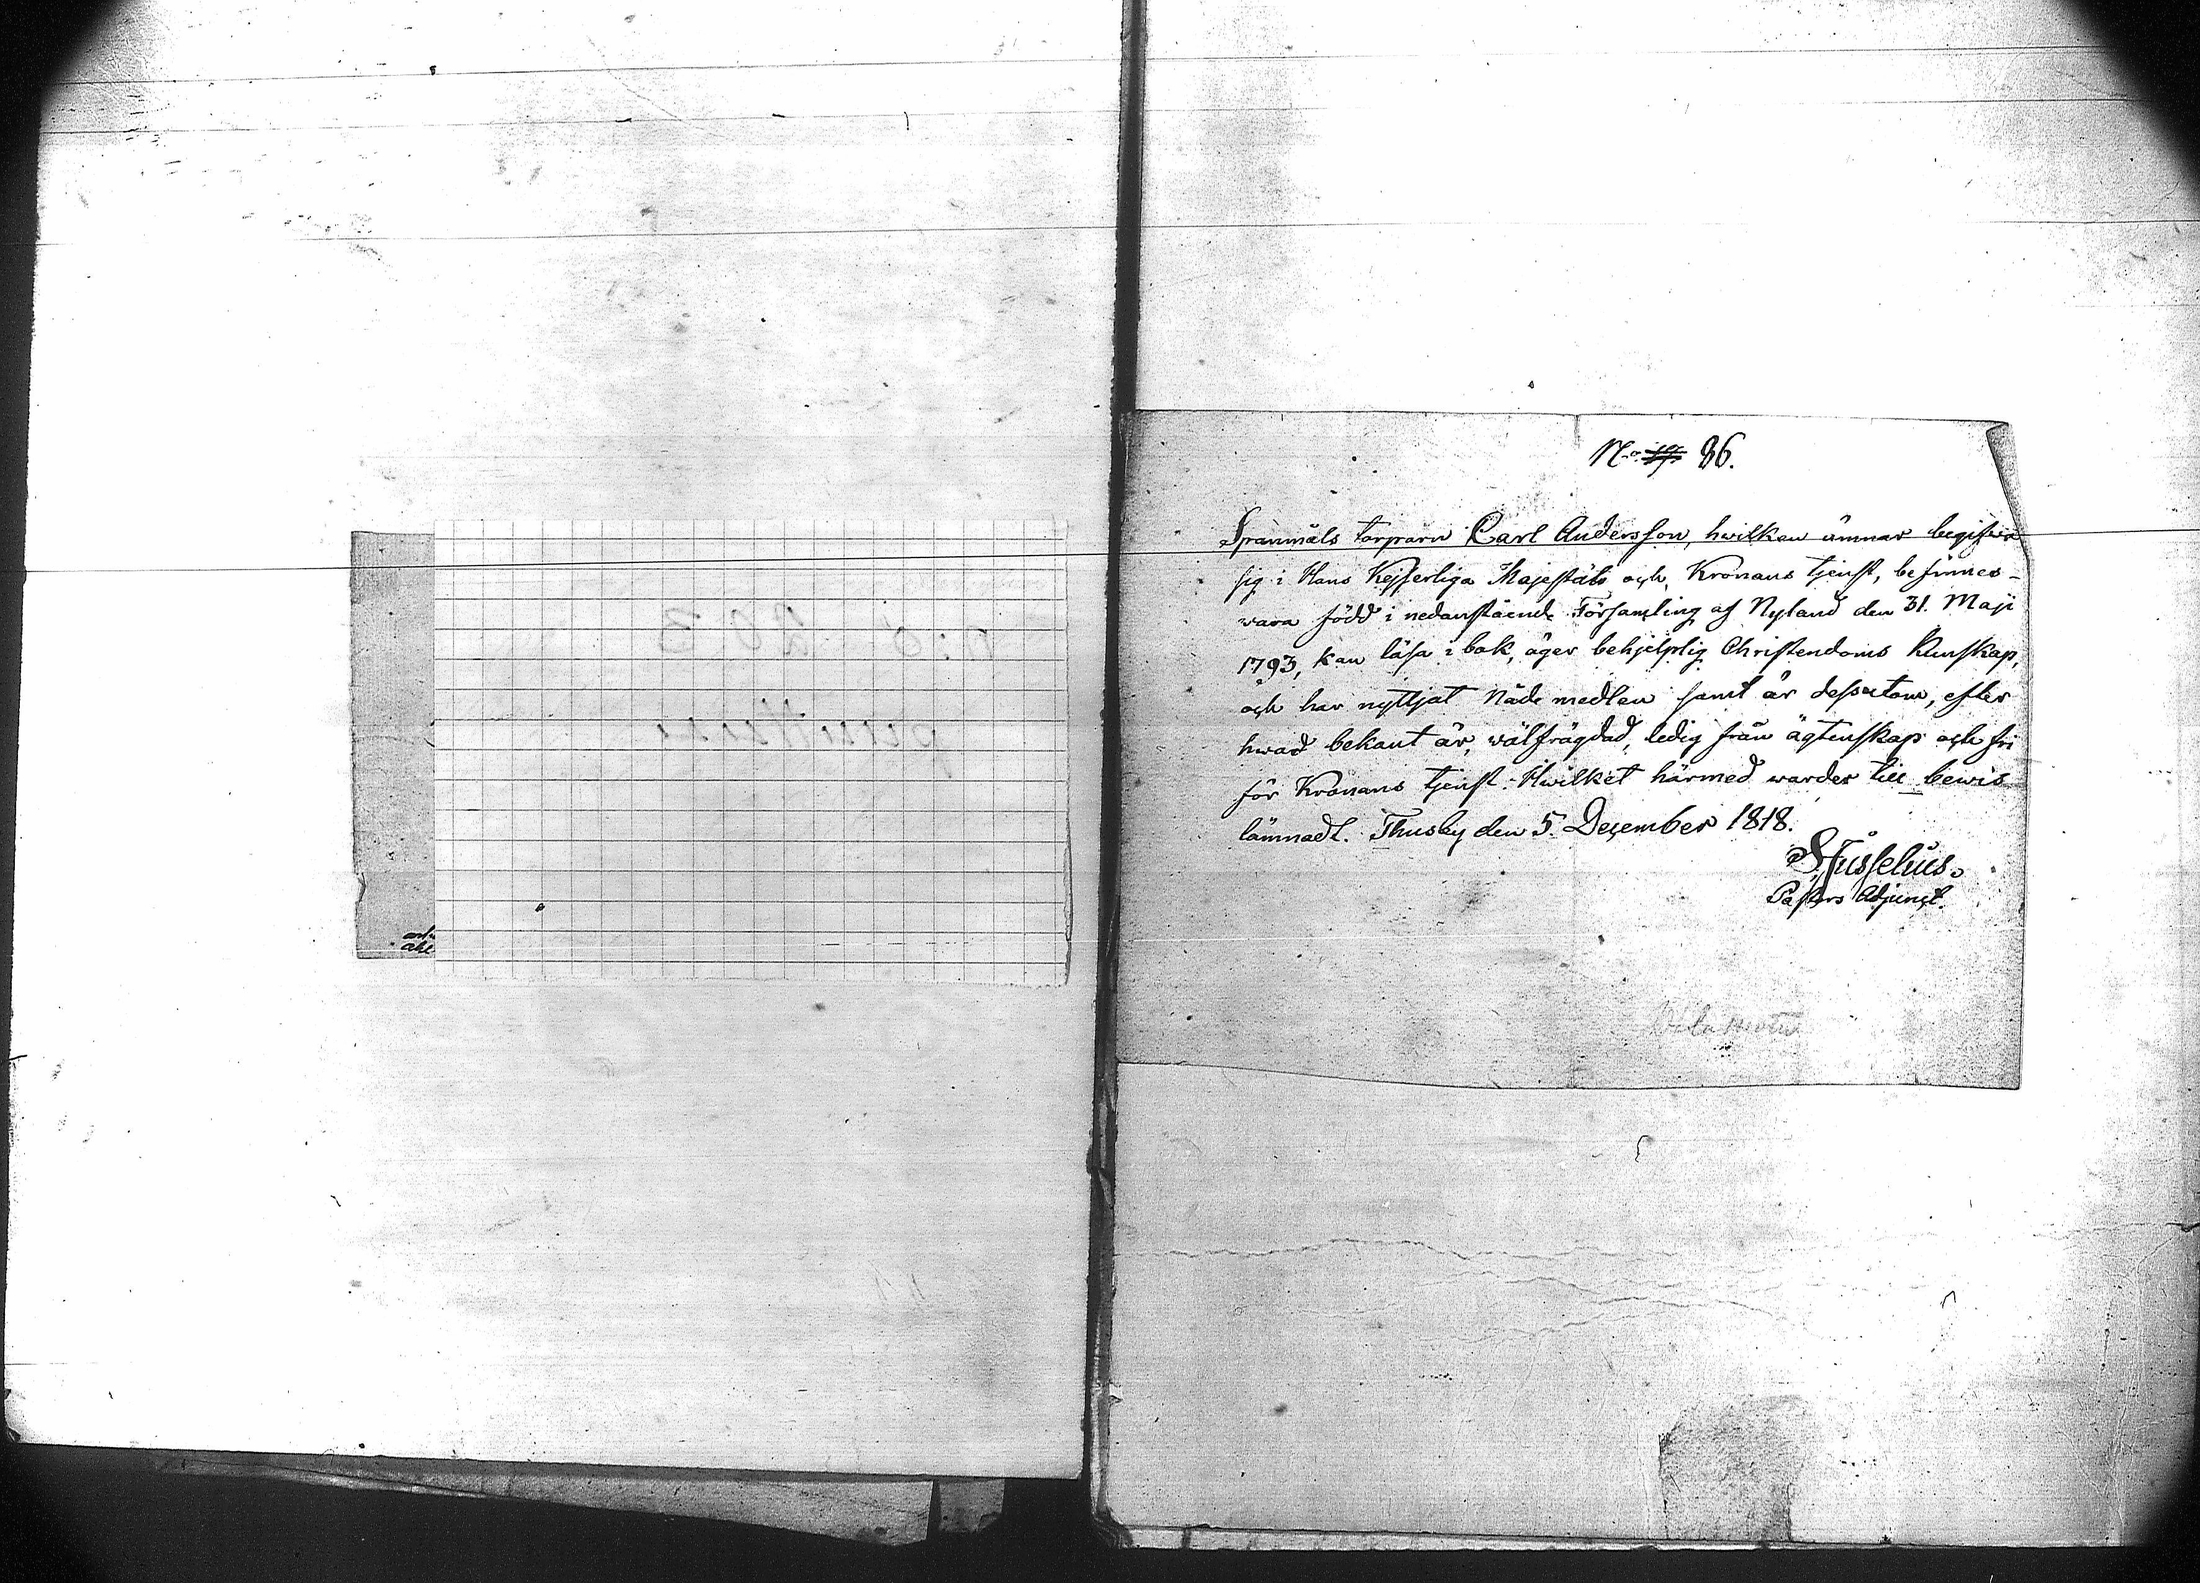 No 19. 86.
Spanmåls torparn Carl Andersson, hwilken ämnar begifwa
sig i Hans Kejserliga Majestäts och Kronans tjenst, befinnes
wara född i nedanstående Församling af Nyland den 31. Maji
1793, kan läsa i bok, äger behjelplig Christendoms kunskap,
och har nyttjat Nåde medlen samt är dessutom, efter
hwad bekant är, wälfrägdad, ledig från ägtenskap och fri
för Kronans tjenst. Hwilket härmed warder till bewis
lämnadt. Thusby den 5. December 1818.
Pastors Adjunct.